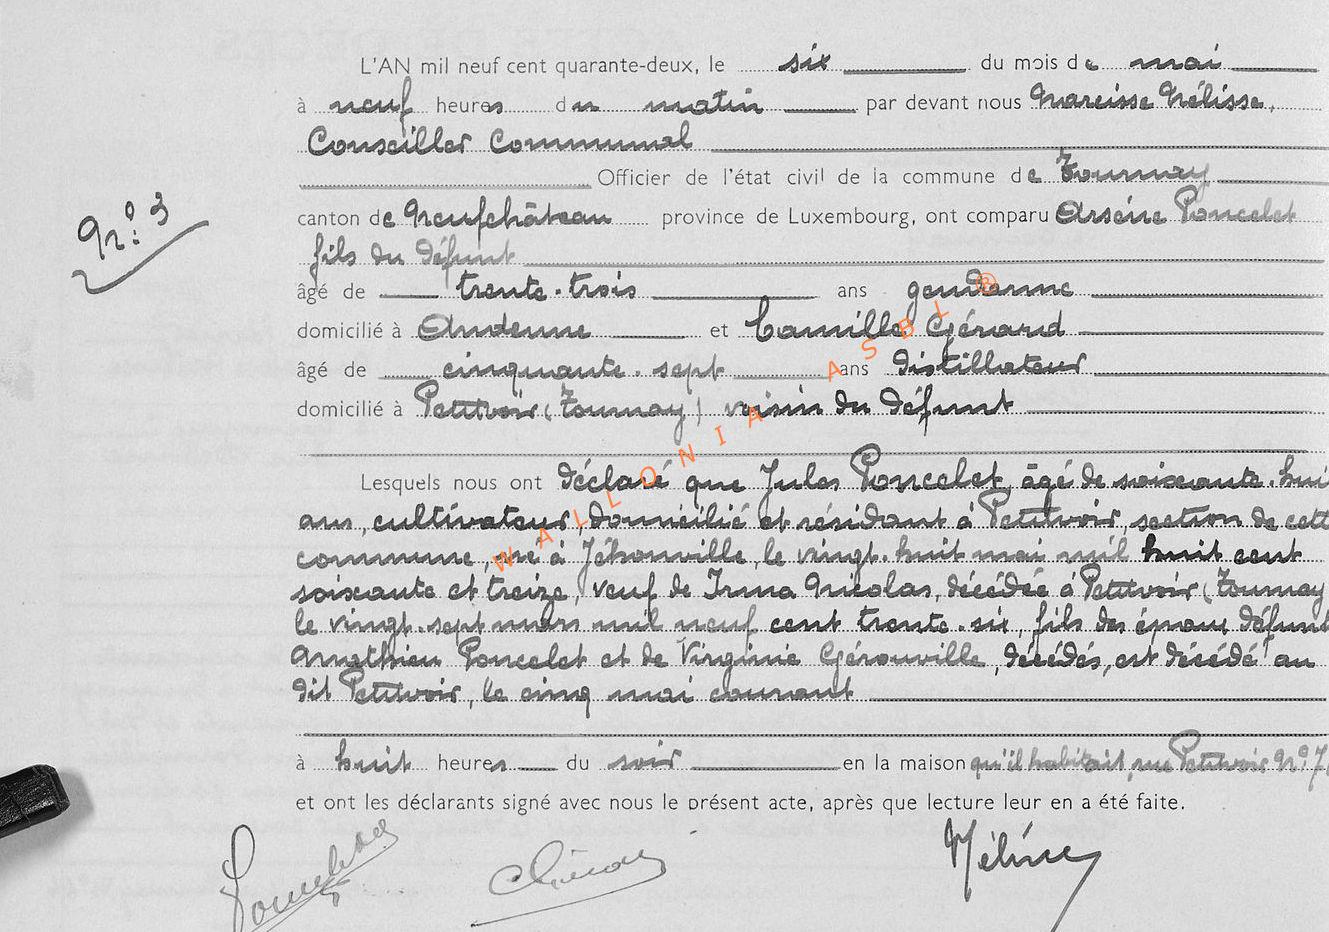 L'AN mil neuf cent quarante-deux, le six du mois de mai
à neuf heures du matin par devant nous Narcisse Mélisse,
Conseiller Communal
Officier de l'état civil de la commune de Tournay
N° 3
canton de Neufchâteau province de Luxembourg, ont comparu Arsène Poncelet
fils du défunt
âgé de trente-trois ans gendarme
domicilié à Andenne et Camille Gérard
âgé de cinquante-sept ans distillateur
domicilié à Petitvoir (Tournay) voisin du défunt
Lesquels nous ont déclaré que Jules Poncelet, âgé de soixante-huit
ans, cultivateur, domicilié et résidant à Petitvoir, section de cette
commune, né à Jéhonville, le vingt-huit mai mil huit cent
soixante et treize, veuf de Irma Nicolas, décédée à Petitvoir (Tournay
le vingt-sept mars mil neuf cent trente-six, fils des époux défunts
Mathieu Poncelet et de Virginie Gérouville, décédés, est décédé au
dit Petitvoir, le cinq mai courant
à huit heures du soir en la maison qu'il habitait, rue Petitvoir N° 7
et ont les déclarants signé avec nous le présent acte, après que lecture leur en a été faite.
WALLONIA ASBL ®